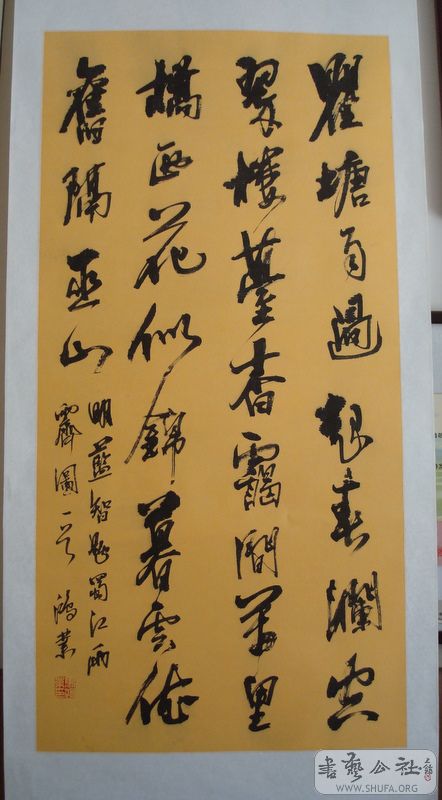 瞿塘雨過起春瀾空
翠樓臺杳靄間萬里
橋西花似錦暮雲依
舊隔巫山
明藍智題蜀江雨
霽圖一首 鴻業
書藝公社
WWW.SHUFA.ORG